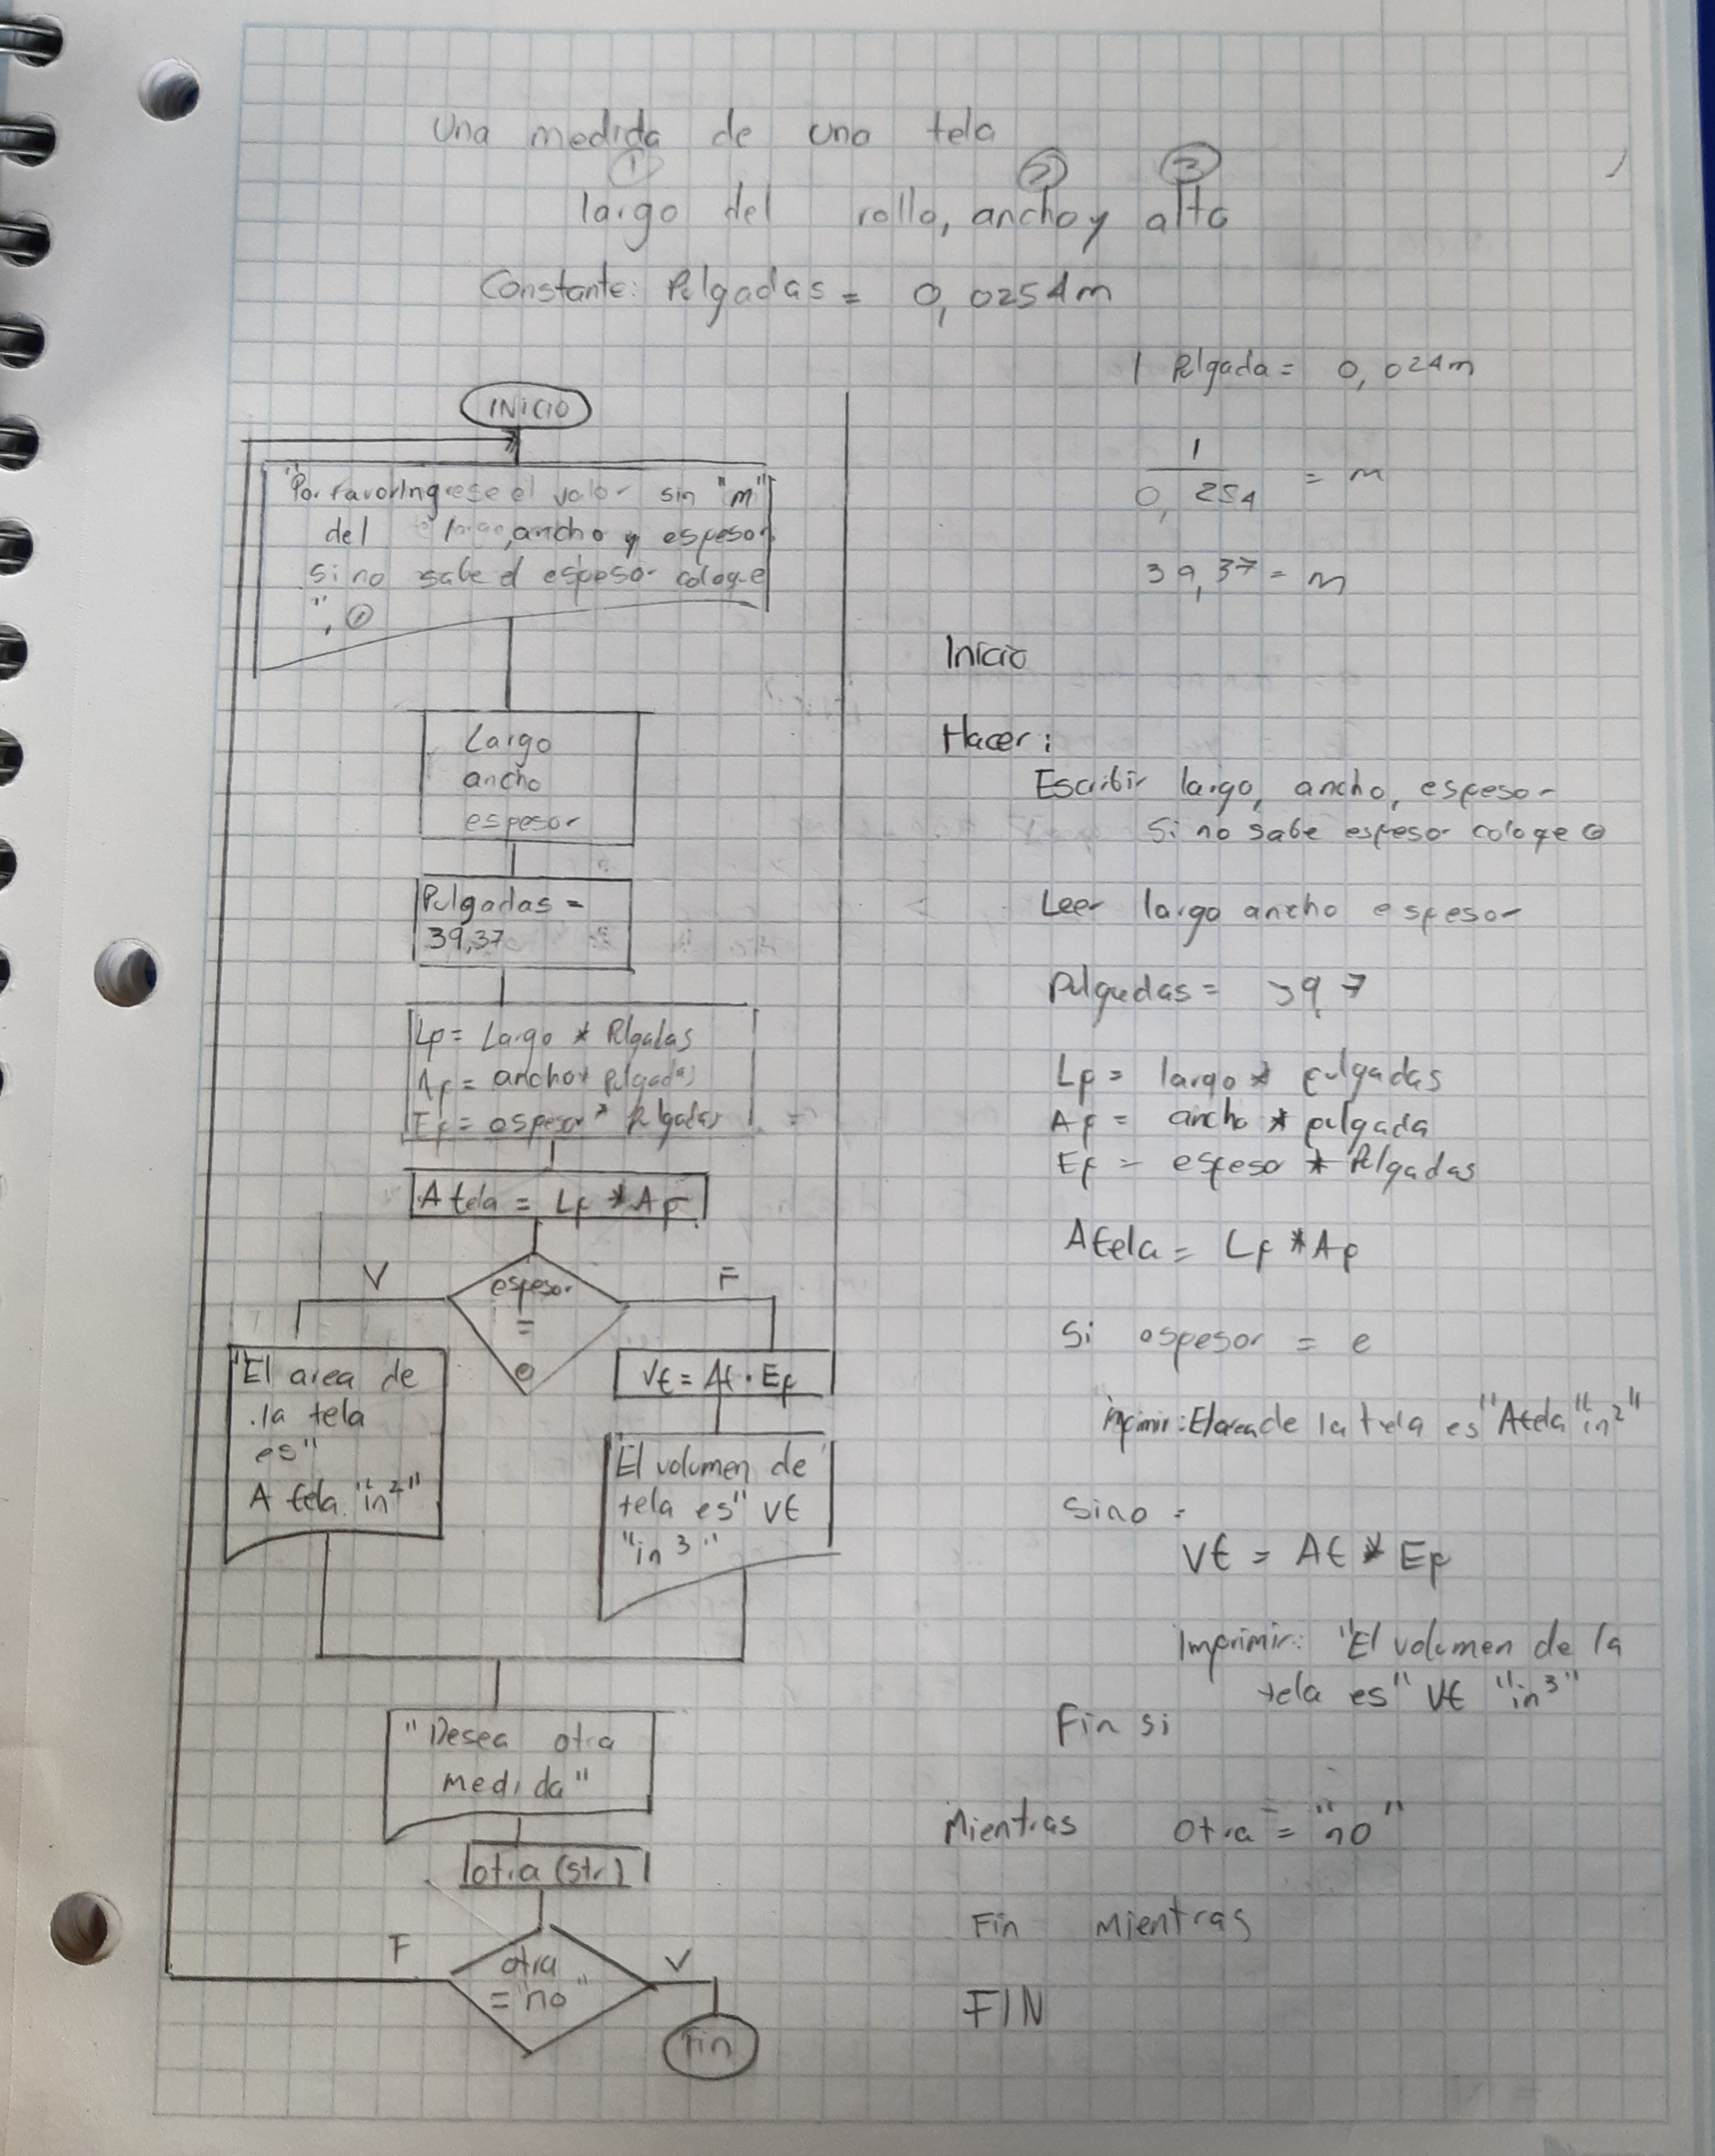 Una medida de una tela
① ② ③
largo del rollo, ancho y alto
Constante: Pulgadas = 0,0254m
1 Pulgada = 0,024m
1
0, 254
= m
39,37 = m
INICIO
"Por favor Ingrese el valor sin "m"
del largo, ancho y espesor
si no sabe el espesor coloqe
", 0
Largo
ancho
espesor
Pulgadas =
39,37
Lp = Largo * Pulgadas
Ap = ancho * pulgadas
Ep = espesor * Pulgadas
A tela = Lp * Ap
V
F
espesor
=
0
"El area de
la tela
es"
A tela "in²"
Vt = At · Ep
El volumen de
tela es" Vt
"in 3"
"Desea otra
medida"
otra (str)
F
V
otra
= "no"
Fin
Inicio
Hacer:
Escribir largo, ancho, espesor
Si no sabe espesor coloqe 0
Leer largo ancho espesor
Pulgadas = 39,7
Lp = largo * pulgadas
Ap = ancho * pulgada
Ep = espeso * Pulgadas
Atela = Lp * Ap
Si espesor = e
imprimir: El area de la tela es "Atela "in²"
Sino =
Vt = At * Ep
Imprimir: "El volumen de la
tela es" Vt "in³"
Fin si
Mientras otra = "no"
Fin mientras
FIN